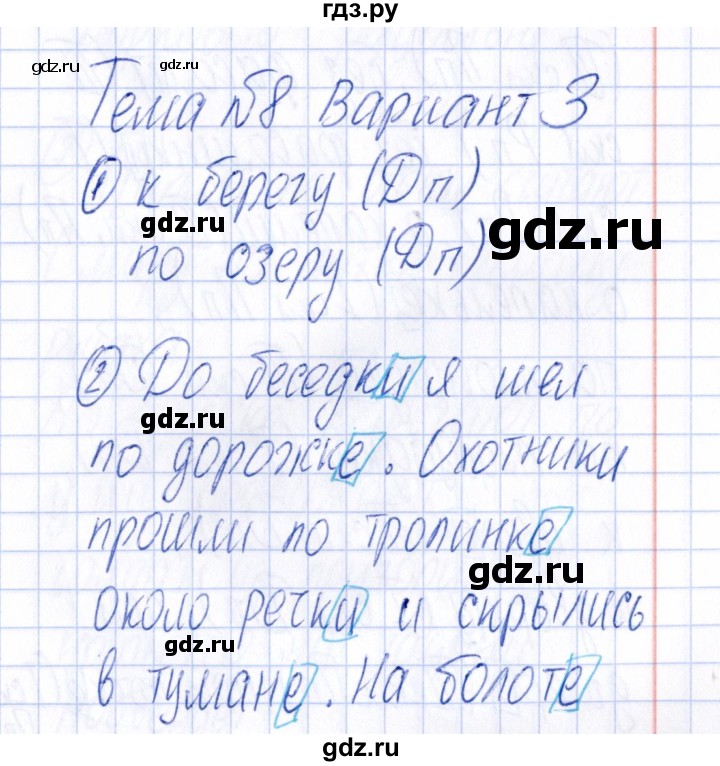 гдз.ру
gdz.ru gdz.ru
Тема №8 Вариант 3
① к берегу (Дп)
gdz.ru
gdz.ru
по озеру (Дп)
② До беседки я шел
gdz.ru
по дорожке. Охотники
прошли по тропинке
gdz.ru
около речки и скрылись
gdz.ru
в тумане. На болоте
gdz.ru